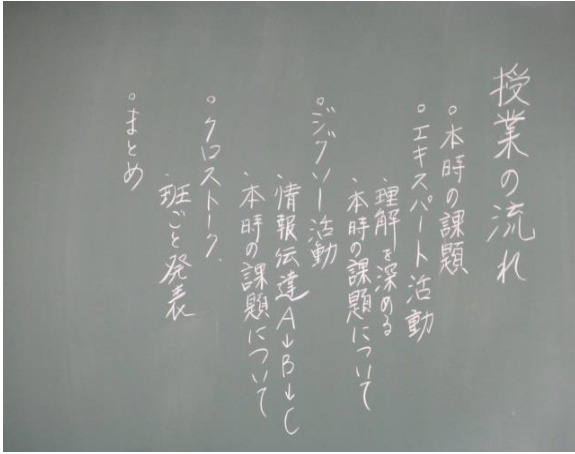 授業の流れ
。本時の課題
。エキスパート活動
理解を深める
・本時の課題について
。ジグソー活動
・情報伝達A→B→C
・本時の課題について
。クロストーク
・班ごと発表
。まとめ